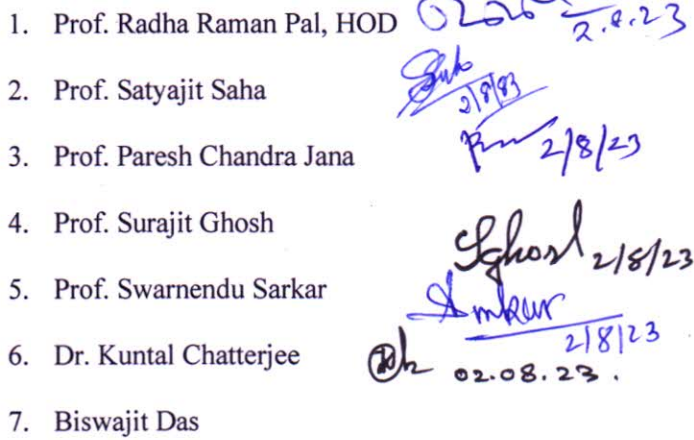 1. Prof. Radha Raman Pal, HOD 2.8.23
2. Prof. Satyajit Saha 2/8/23
3. Prof. Paresh Chandra Jana 2/8/23
4. Prof. Surajit Ghosh SGhosh 2/8/23
5. Prof. Swarnendu Sarkar 2/8/23
6. Dr. Kuntal Chatterjee 02.08.23.
7. Biswajit Das